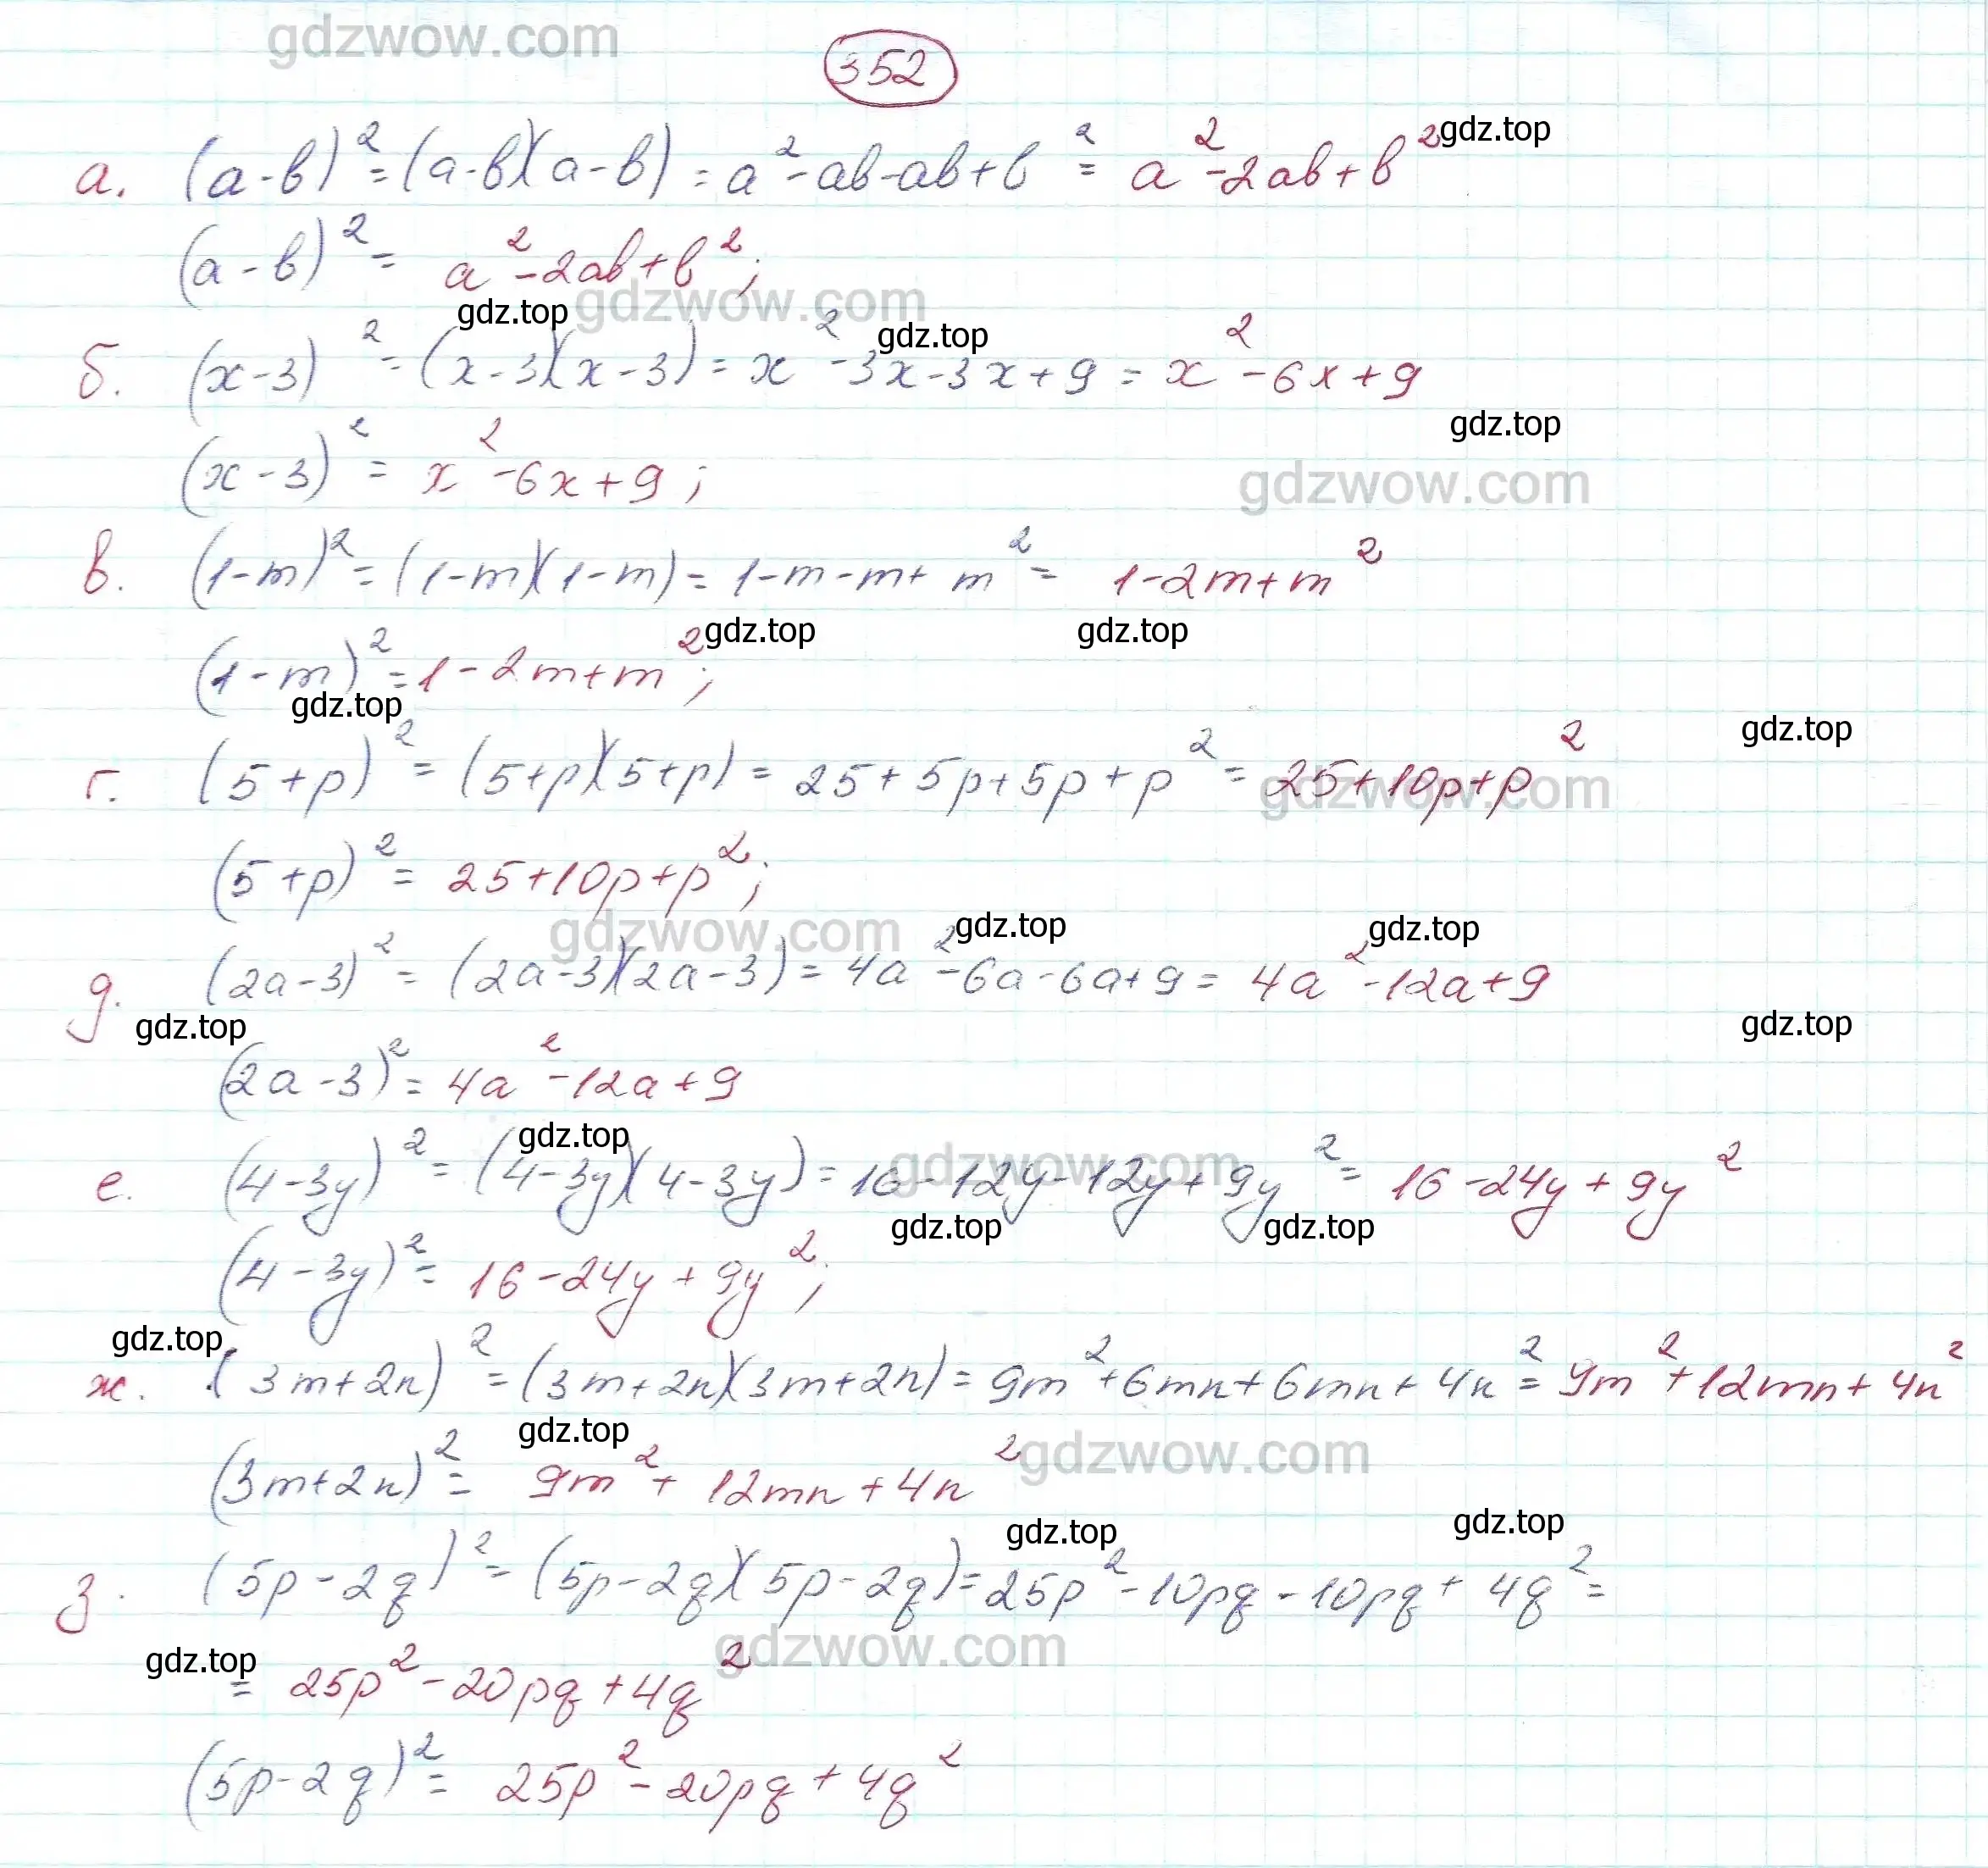 gdzwow.com
352
а. (a-b)²=(a-b)(a-b)=a²-ab-ab+b²=a²-2ab+b² gdz.top
(a-b)²= a²-2ab+b²;
gdz.top gdzwow.com gdz.top
б. (x-3)²=(x-3)(x-3)=x²-3x-3x+9=x²-6x+9
gdz.top
(x-3)²= x²-6x+9;
gdzwow.com
в. (1-m)²=(1-m)(1-m)=1-m-m+m²= 1-2m+m²
gdz.top gdz.top
(1-m)²=1-2m+m²;
gdz.top gdz.top
г. (5+p)²=(5+p)(5+p)=25+5p+5p+p²=25+10p+p²
gdzwow.com
(5+p)²= 25+10p+p²;
gdzwow.com gdz.top gdz.top
д. (2a-3)²=(2a-3)(2a-3)=4a²-6a-6a+9=4a²-12a+9
gdz.top gdz.top
(2a-3)²=4a²-12a+9
gdz.top gdzwow.com
е. (4-3y)²=(4-3y)(4-3y)=16-12y-12y+9y²=16-24y+9y²
gdz.top gdz.top
(4-3y)²= 16-24y+9y²;
gdz.top
ж. (3m+2n)²=(3m+2n)(3m+2n)=9m²+6mn+6mn+4n²=9m²+12mn+4n²
gdz.top gdzwow.com
(3m+2n)²= 9m²+12mn+4n²
gdz.top gdz.top
з. (5p-2q)²=(5p-2q)(5p-2q)=25p²-10pq-10pq+4q²=
gdz.top gdzwow.com
= 25p²-20pq+4q²
(5p-2q)²= 25p²-20pq+4q²